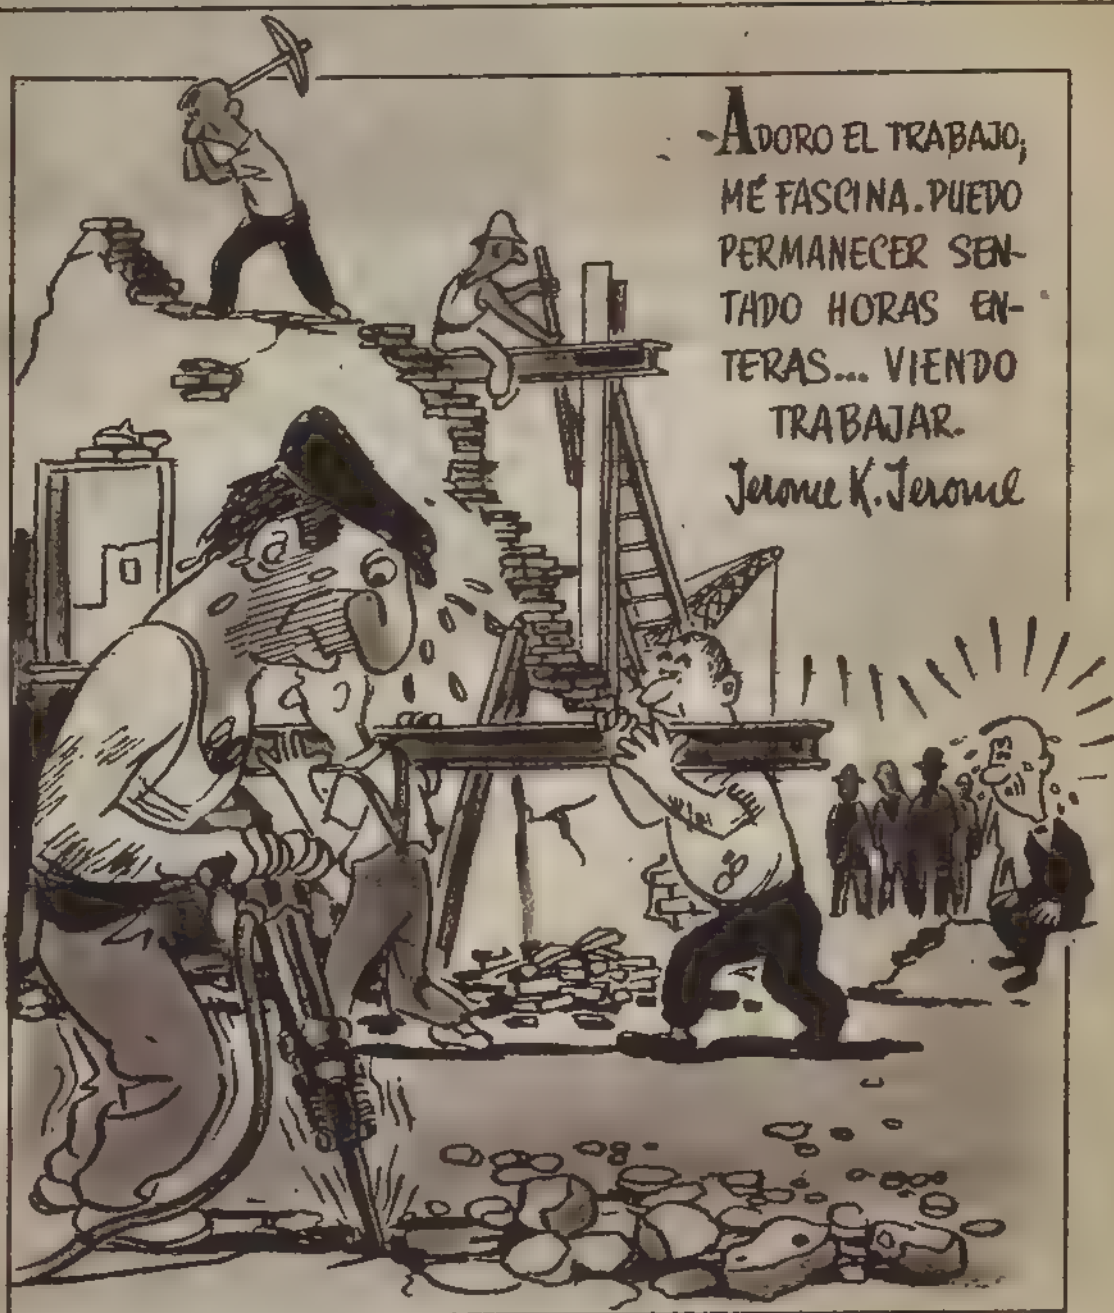 ADORO EL TRABAJO;
ME FASCINA. PUEDO
PERMANECER SEN-
TADO HORAS EN-
TERAS... VIENDO
TRABAJAR.
Jerome K. Jerome